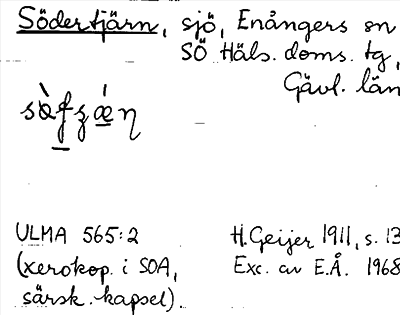 Södertjärn, sjö, Enångers sn
SÖ Häls. doms. tg,
Gävl. län
ULMA 565:2
(xerokop. i SOA,
särsk. kapsel).
H. Geijer 1911, s. 13
Exc. av E.Å. 1968